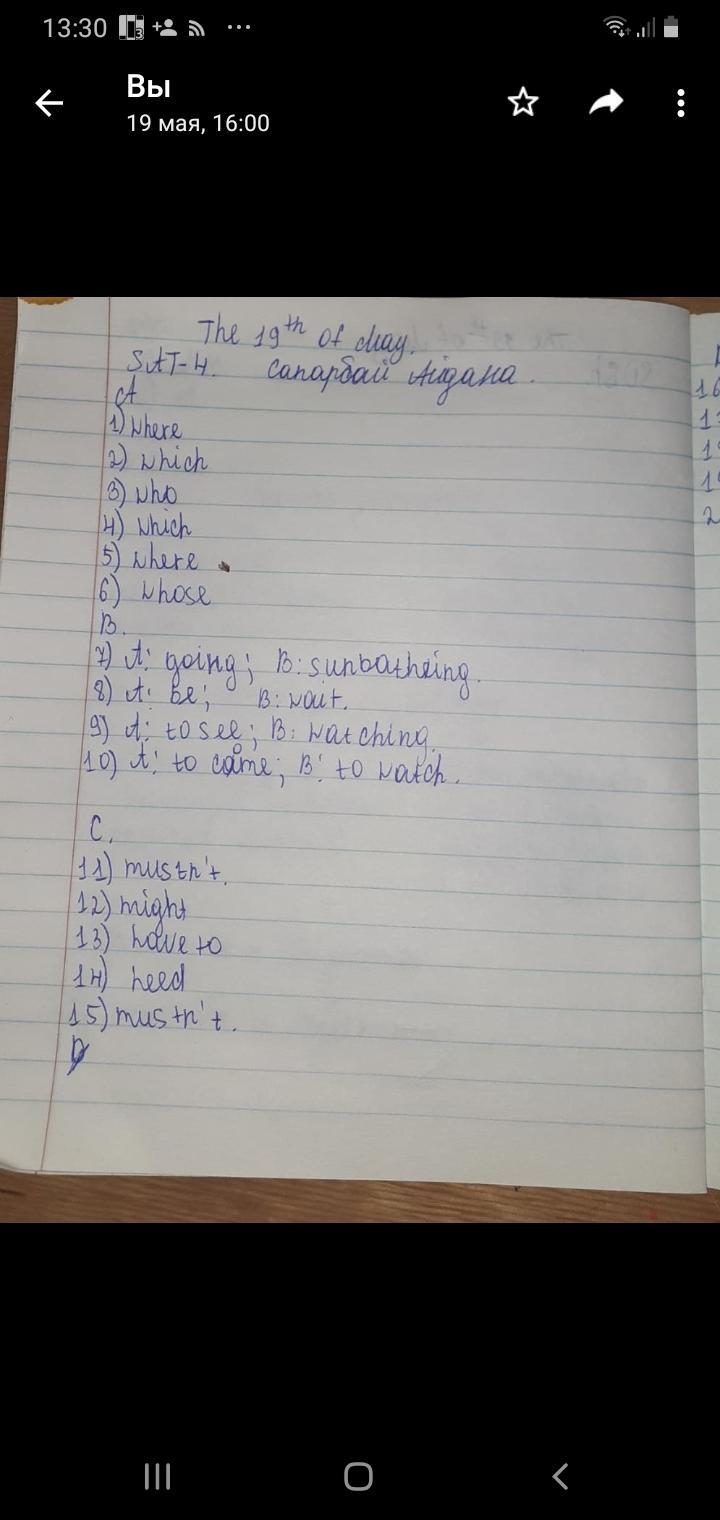 13:30
Вы
19 мая, 16:00
The 19th of May.
SAT-4. Сапарбай Аідана.
A
1) where
2) which
3) who
4) which
5) where
6) whose
B.
7) A: going; B: sunbatheing.
8) A: be; B: wait.
9) A: to see; B: watching.
10) A: to come; B: to watch.
C.
11) mustn't.
12) might
13) have to
14) need
15) mustn't.
D